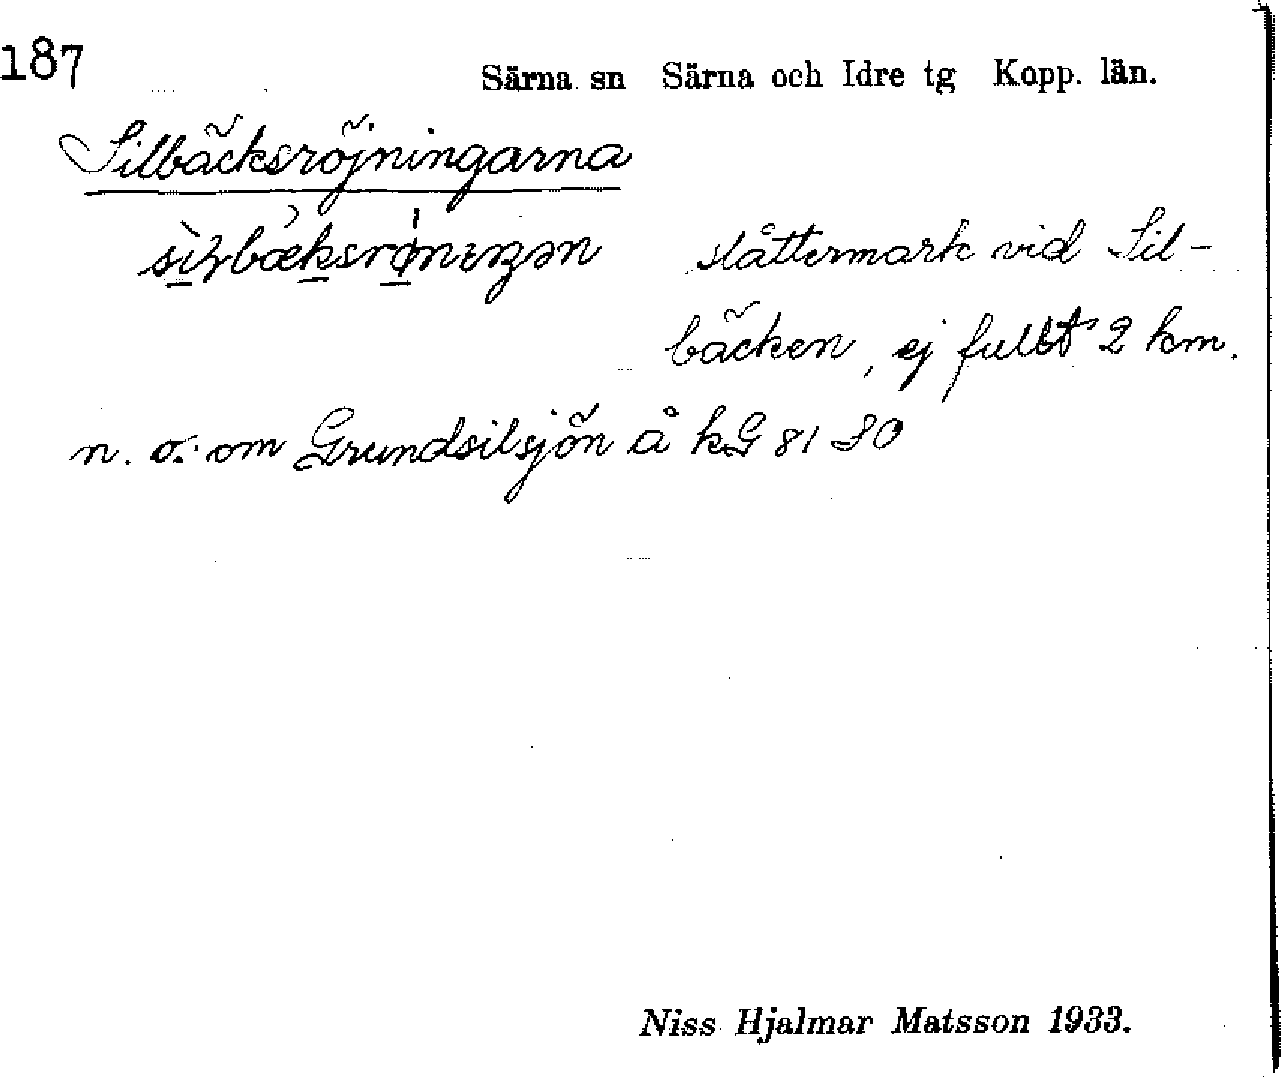 187
Särna sn Särna och Idre tg Kopp. län.
Silbäcksröjningarna
slåttermark vid Sil-
bäcken, ej fullt 2 km.
n. o. om Grundsilsjön å kG 81 80
Niss Hjalmar Matsson 1933.